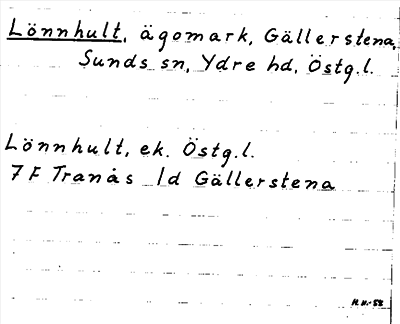 Lönnhult, ägomark, Gällerstena,
Sunds sn, Ydre hd, Östg.l.
Lönnhult, ek. Östg.l.
7 F Tranås 1d Gällerstena